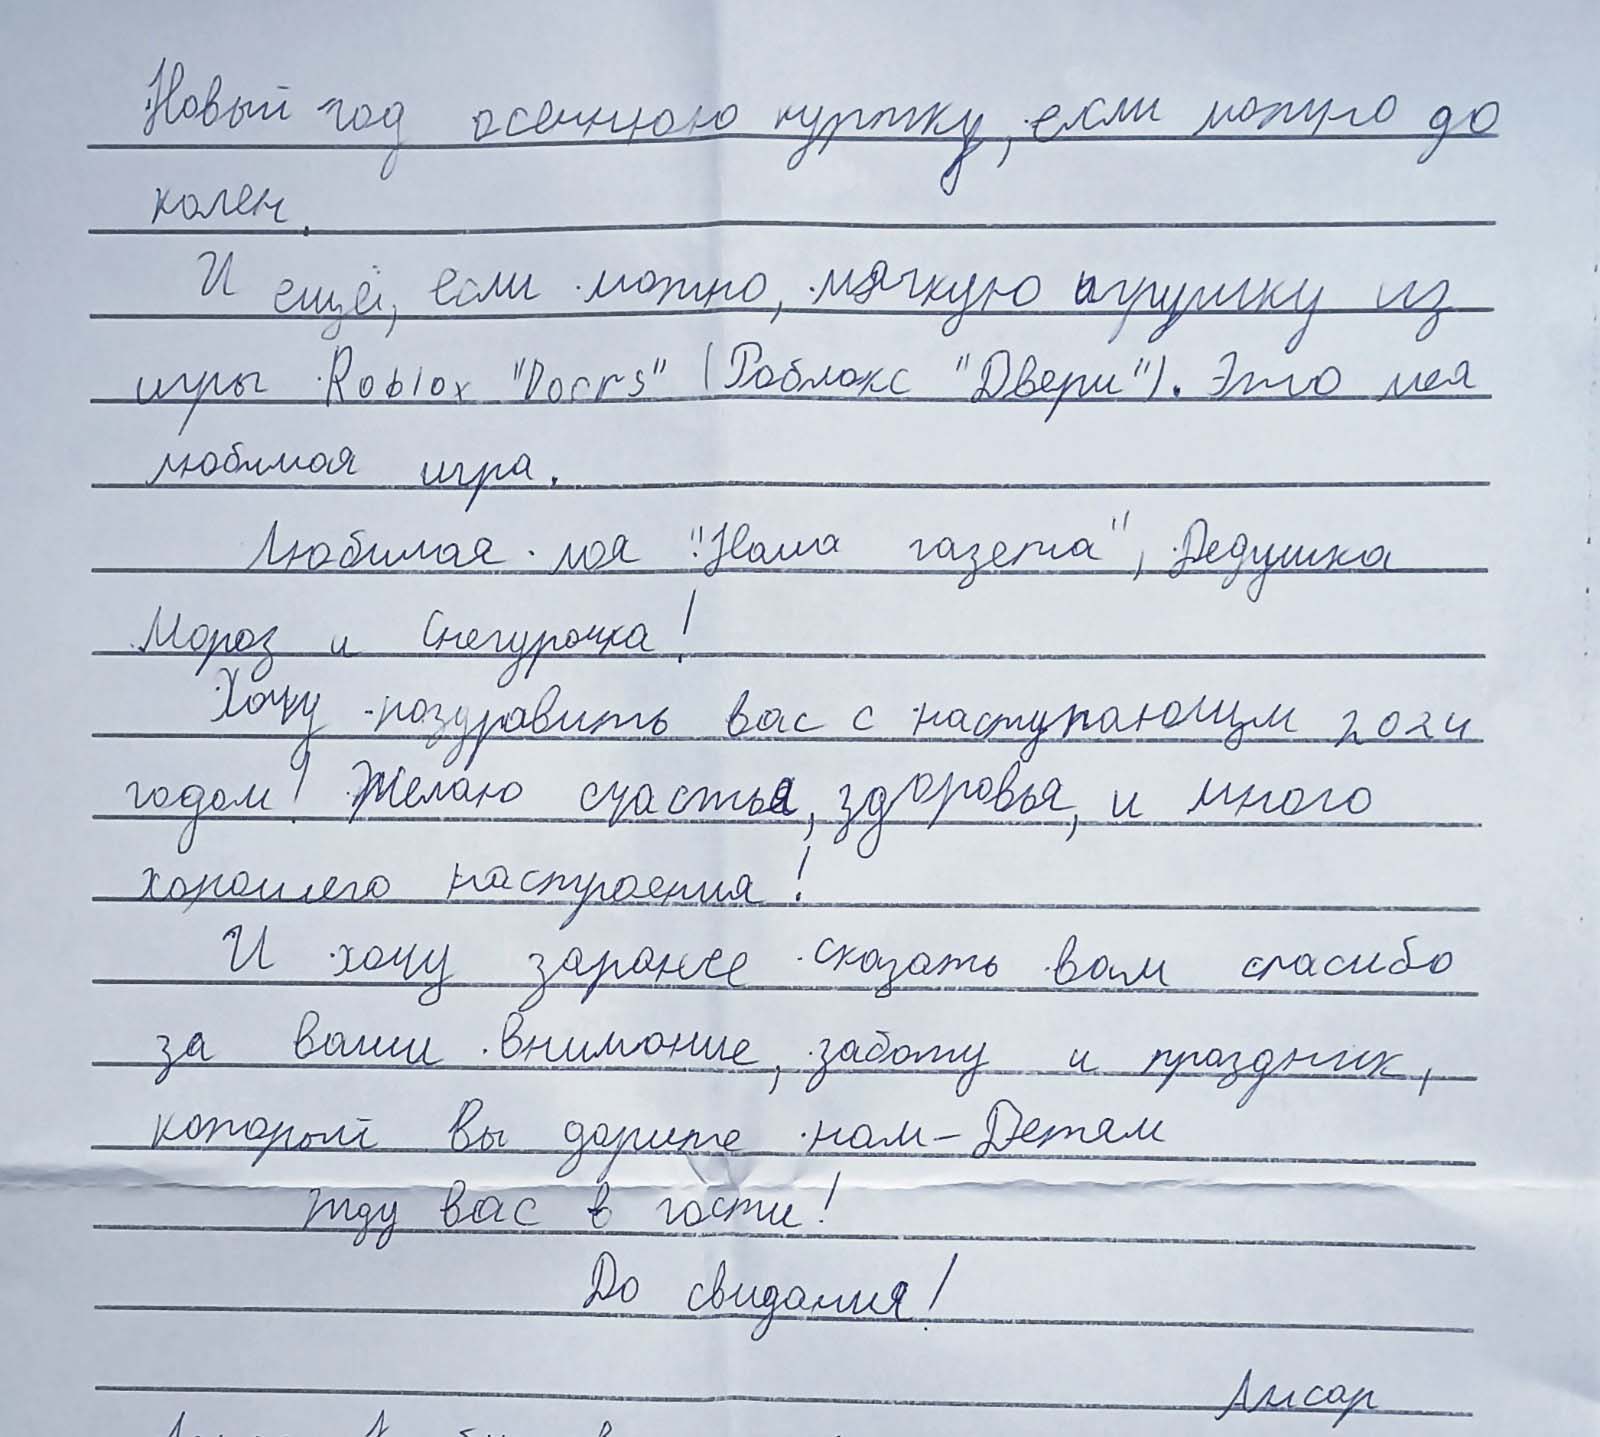 Новый год осеннюю куртку, если можно до
колен.
И ещё, если можно, мягкую игрушку из
игры Roblox "Doors" (Роблокс "Двери"). Это моя
любимая игра.
Любимая моя "Наша газета", Дедушка
Мороз и Снегурочка!
Хочу поздравить вас с наступающим 2024
годом! Желаю счастья, здоровья, и много
хорошего настроения!
И хочу заранее сказать вам спасибо
за ваши внимание, заботу и праздник,
который вы дарите нам - Детям
Жду вас в гости!
До свидания!
Ансар